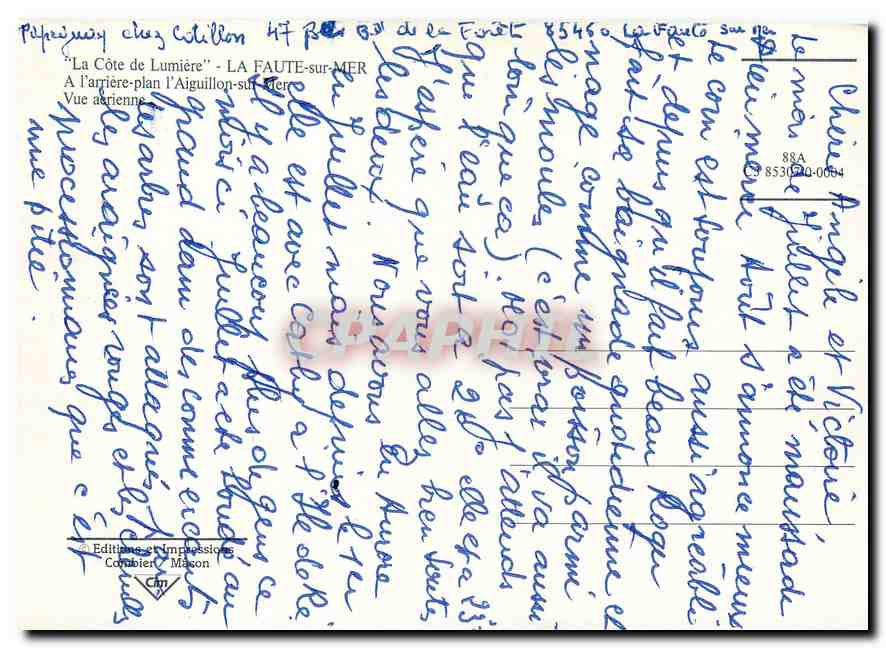 Papeignay chez Cotillon 47 Bis Bd de la Forêt 85460 La Faute sur mer
"La Côte de Lumière" - LA FAUTE-sur-MER
A l'arrière-plan l'Aiguillon-sur-Mer
Vue aérienne
88A
C3 85307/0-0004
Chère Angèle et Victoire
Le mois de Juillet a été maussade
bien mieux Août s'annonce mieux
le coin est toujours aussi agréable
et depuis qu'il fait beau Roger
fait sa baignade quotidienne et
nage comme un poisson parmi
les moules (c'est vrai il va aussi
loin que ça). Moi pas j'attends
que l'eau soit à 24° elle est à 23°
J'espère que vous allez bien toutes
les deux. Nous avons eu Aurore
en Juillet mais depuis le 1er
elle est avec Cathy à l'Ile de Ré
Il y a beaucoup plus de gens ce
mois ci. Juillet a été loud au
grand dam des commerçants
Les arbres sont attaqués par
les araignées rouges et les chenilles
processionnaires que c'est
une pitié.
© Editions et Impressions
Combier Mâcon
Cim
CPAPHIL